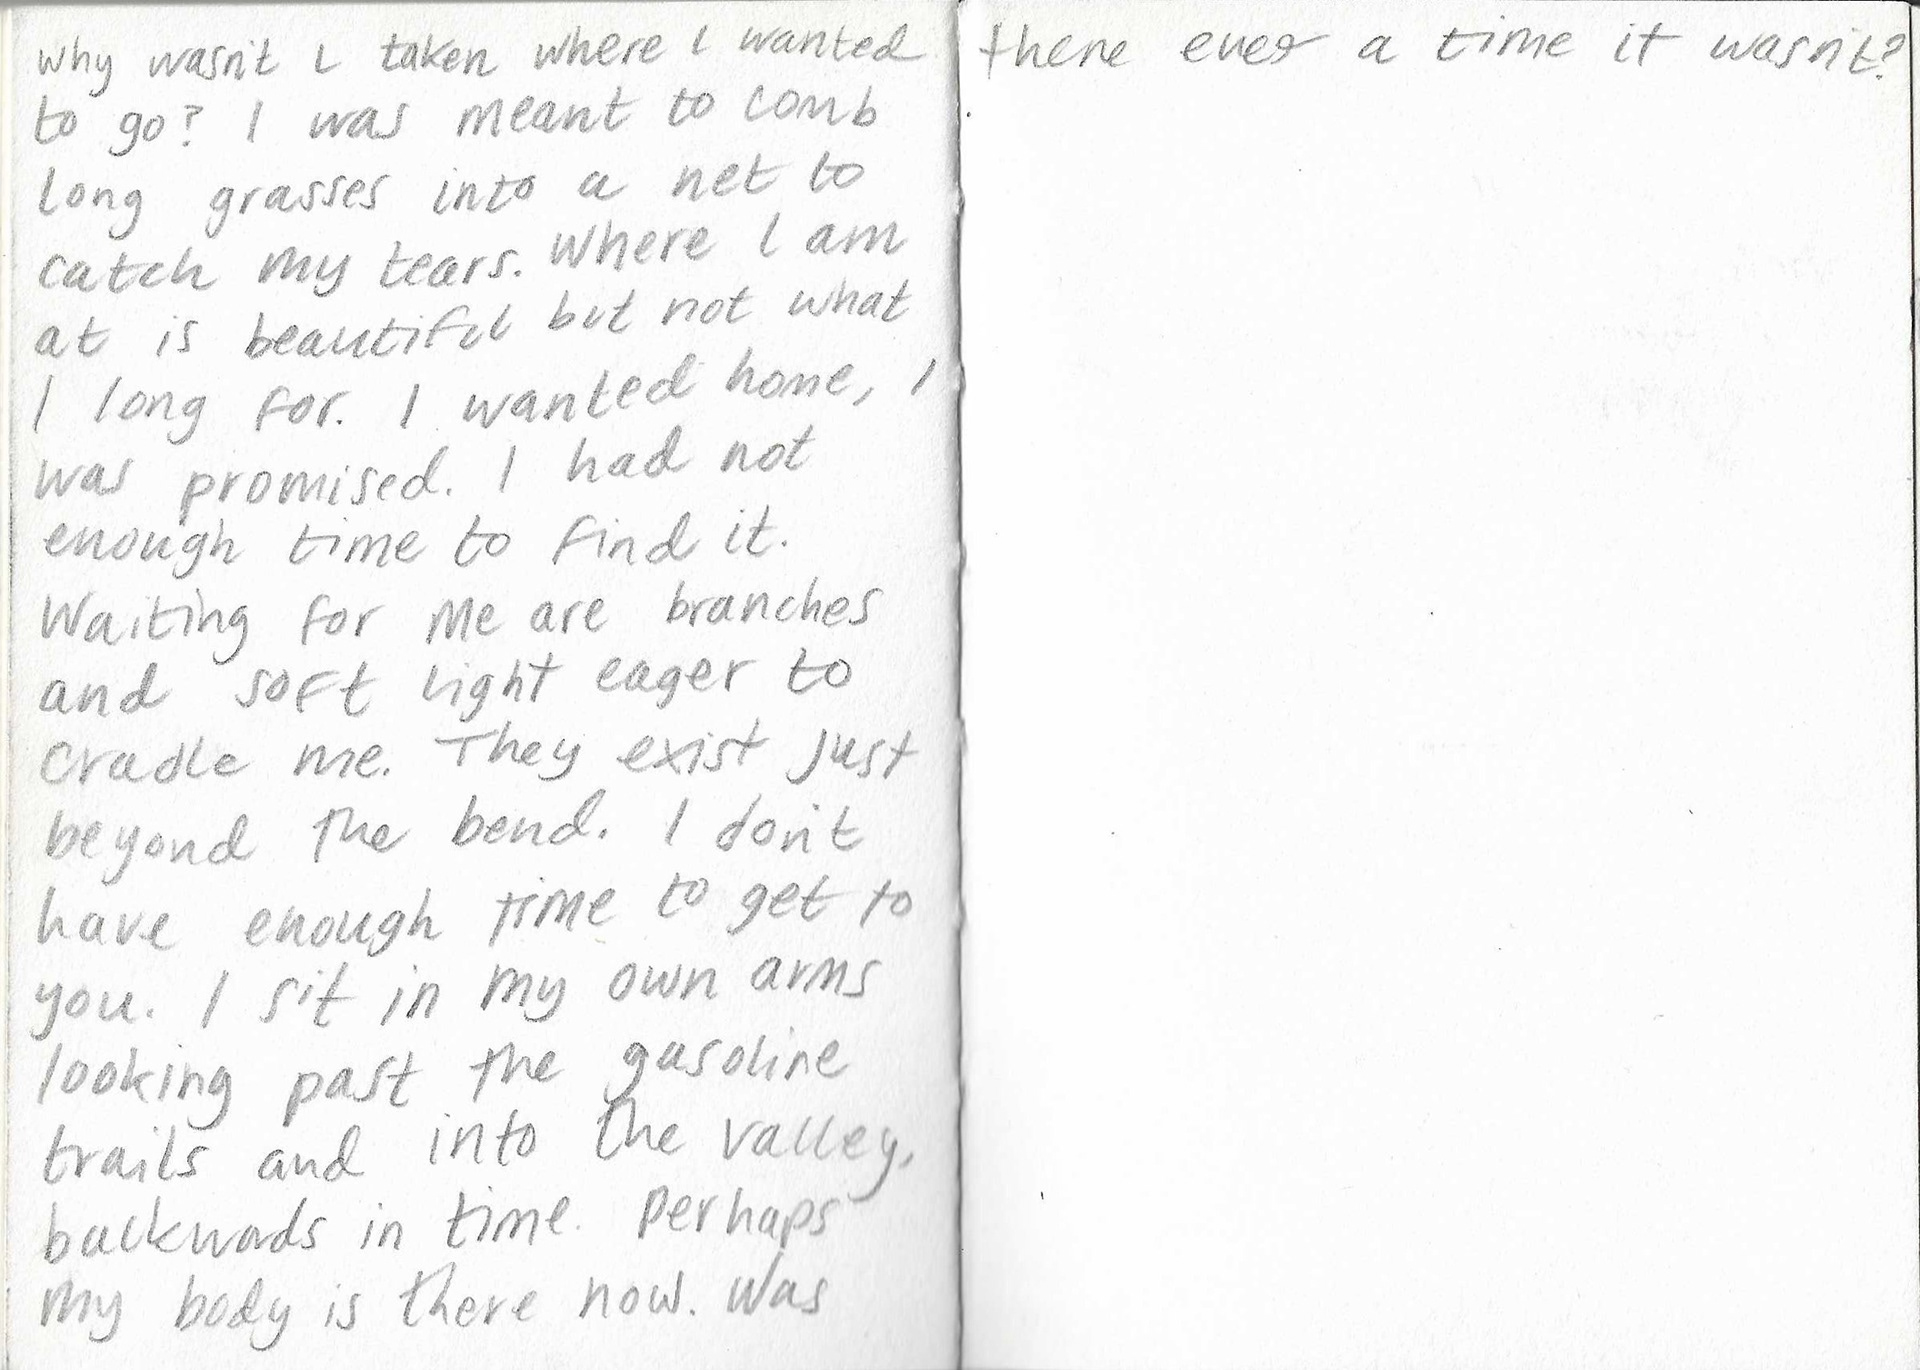 Why wasn't I taken where I wanted
to go? I was meant to comb
long grasses into a net to
catch my tears. Where I am
at is beautiful but not what
I long for. I wanted home, I
was promised. I had not
enough time to find it.
Waiting for me are branches
and soft light eager to
cradle me. They exist just
beyond the bend. I don't
have enough time to get to
you. I sit in my own arms
looking past the gasoline
trails and into the valley,
backwards in time. Perhaps
my body is there now. Was
there ever a time it wasn't?